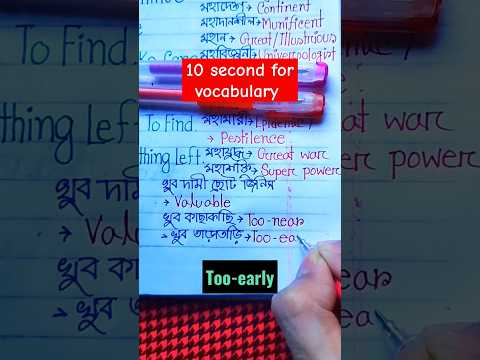 মহাদেশ → Continent
মহাদানশীল → Munificent
মহান → Great/Illustrious
মহাবিজ্ঞানী → Universologist
10 second for
vocabulary
To Find
মহামারী → Epidemic /
→ Pestilence
thing Left
মহাযুদ্ধ → Great war
মহাশক্তি → Super power
খুব দামী ছোট জিনিস
→ Valuable
খুব কাছাকাছি → Too-near
→ খুব তাড়াতাড়ি → Too-ea
Too-early